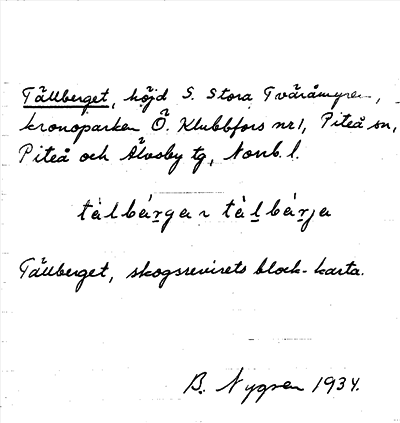 Tällberget, höjd S. Stora Tväråmyren,
kronoparken Ö. Klubbfors nr 1, Piteå sn,
Piteå och Älvsby tg, Norrb. l.
tàlbárga ~ tàlbárja
Tällberget, skogsrevirets block-karta.
B. Nygren 1934.